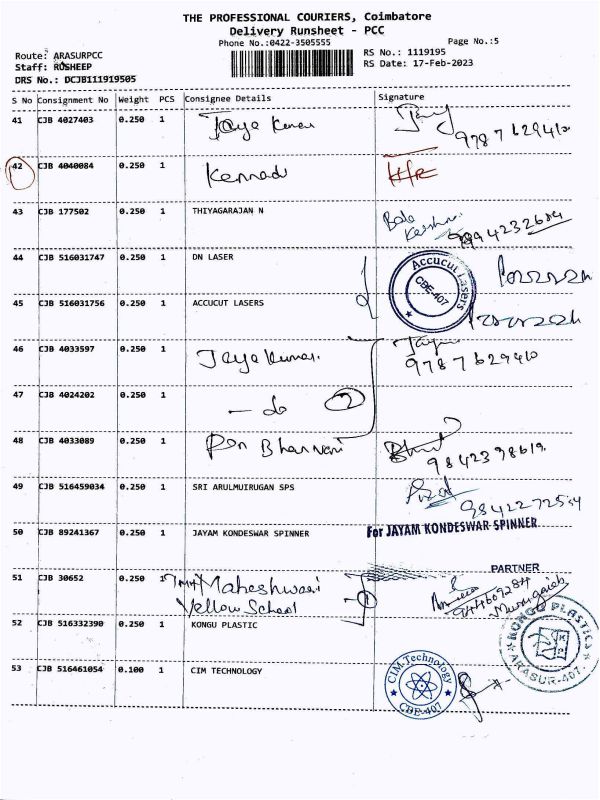 THE PROFESSIONAL COURIERS, Coimbatore
Delivery Runsheet - PCC
Phone No.:0422-3505555 Page No.:5
Route: ARASURPCC RS No.: 1119195
Staff: ROSHEEP RS Date: 17-Feb-2023
DRS No.: DCJB111919505
S No Consignment No Weight PCS Consignee Details Signature
41 CJB 4027403 0.250 1 Jaya Kumar 9787629410
42 CJB 4040084 0.250 1 Kennadi
43 CJB 177502 0.250 1 THIYAGARAJAN N Bala
9994232684
44 CJB 516031747 0.250 1 DN LASER Accucut Lasers
CBE-407
45 CJB 516031756 0.250 1 ACCUCUT LASERS
46 CJB 4033597 0.250 1 Jaya Kumar. 9787629410
47 CJB 4024202 0.250 1 - do 2
48 CJB 4033089 0.250 1 Pon Bhavani
49 CJB 516459034 0.250 1 SRI ARULMUIRUGAN SPS
50 CJB 89241367 0.250 1 JAYAM KONDESWAR SPINNER For JAYAM KONDESWAR SPINNER
PARTNER
51 CJB 30652 0.250 1 Maheshwari 1 9444609284
Yellow School Murugaiah
52 CJB 516332390 0.250 1 KONGU PLASTIC KONGU PLASTICS
ARASUR-407
53 CJB 516461054 0.100 1 CIM TECHNOLOGY CIM-Technology
CBE-407